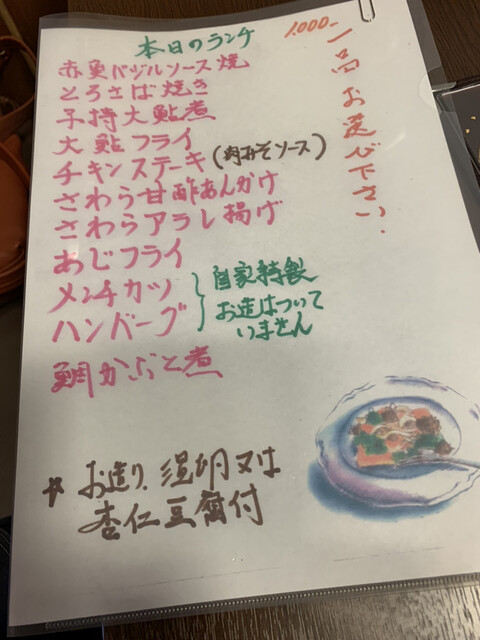 本日のランチ
1,000-
一品お選び下さい.
赤魚バジルソース焼
とろさば焼き
子持大鮎煮
大鮎フライ
チキンステーキ(肉みそソース)
さわら甘酢あんかけ
さわらアラレ揚げ
あじフライ
メンチカツ
ハンバーグ
自家特製
お造はついて
いません
鯛かぶと煮
お造り、温卵又は
杏仁豆腐付